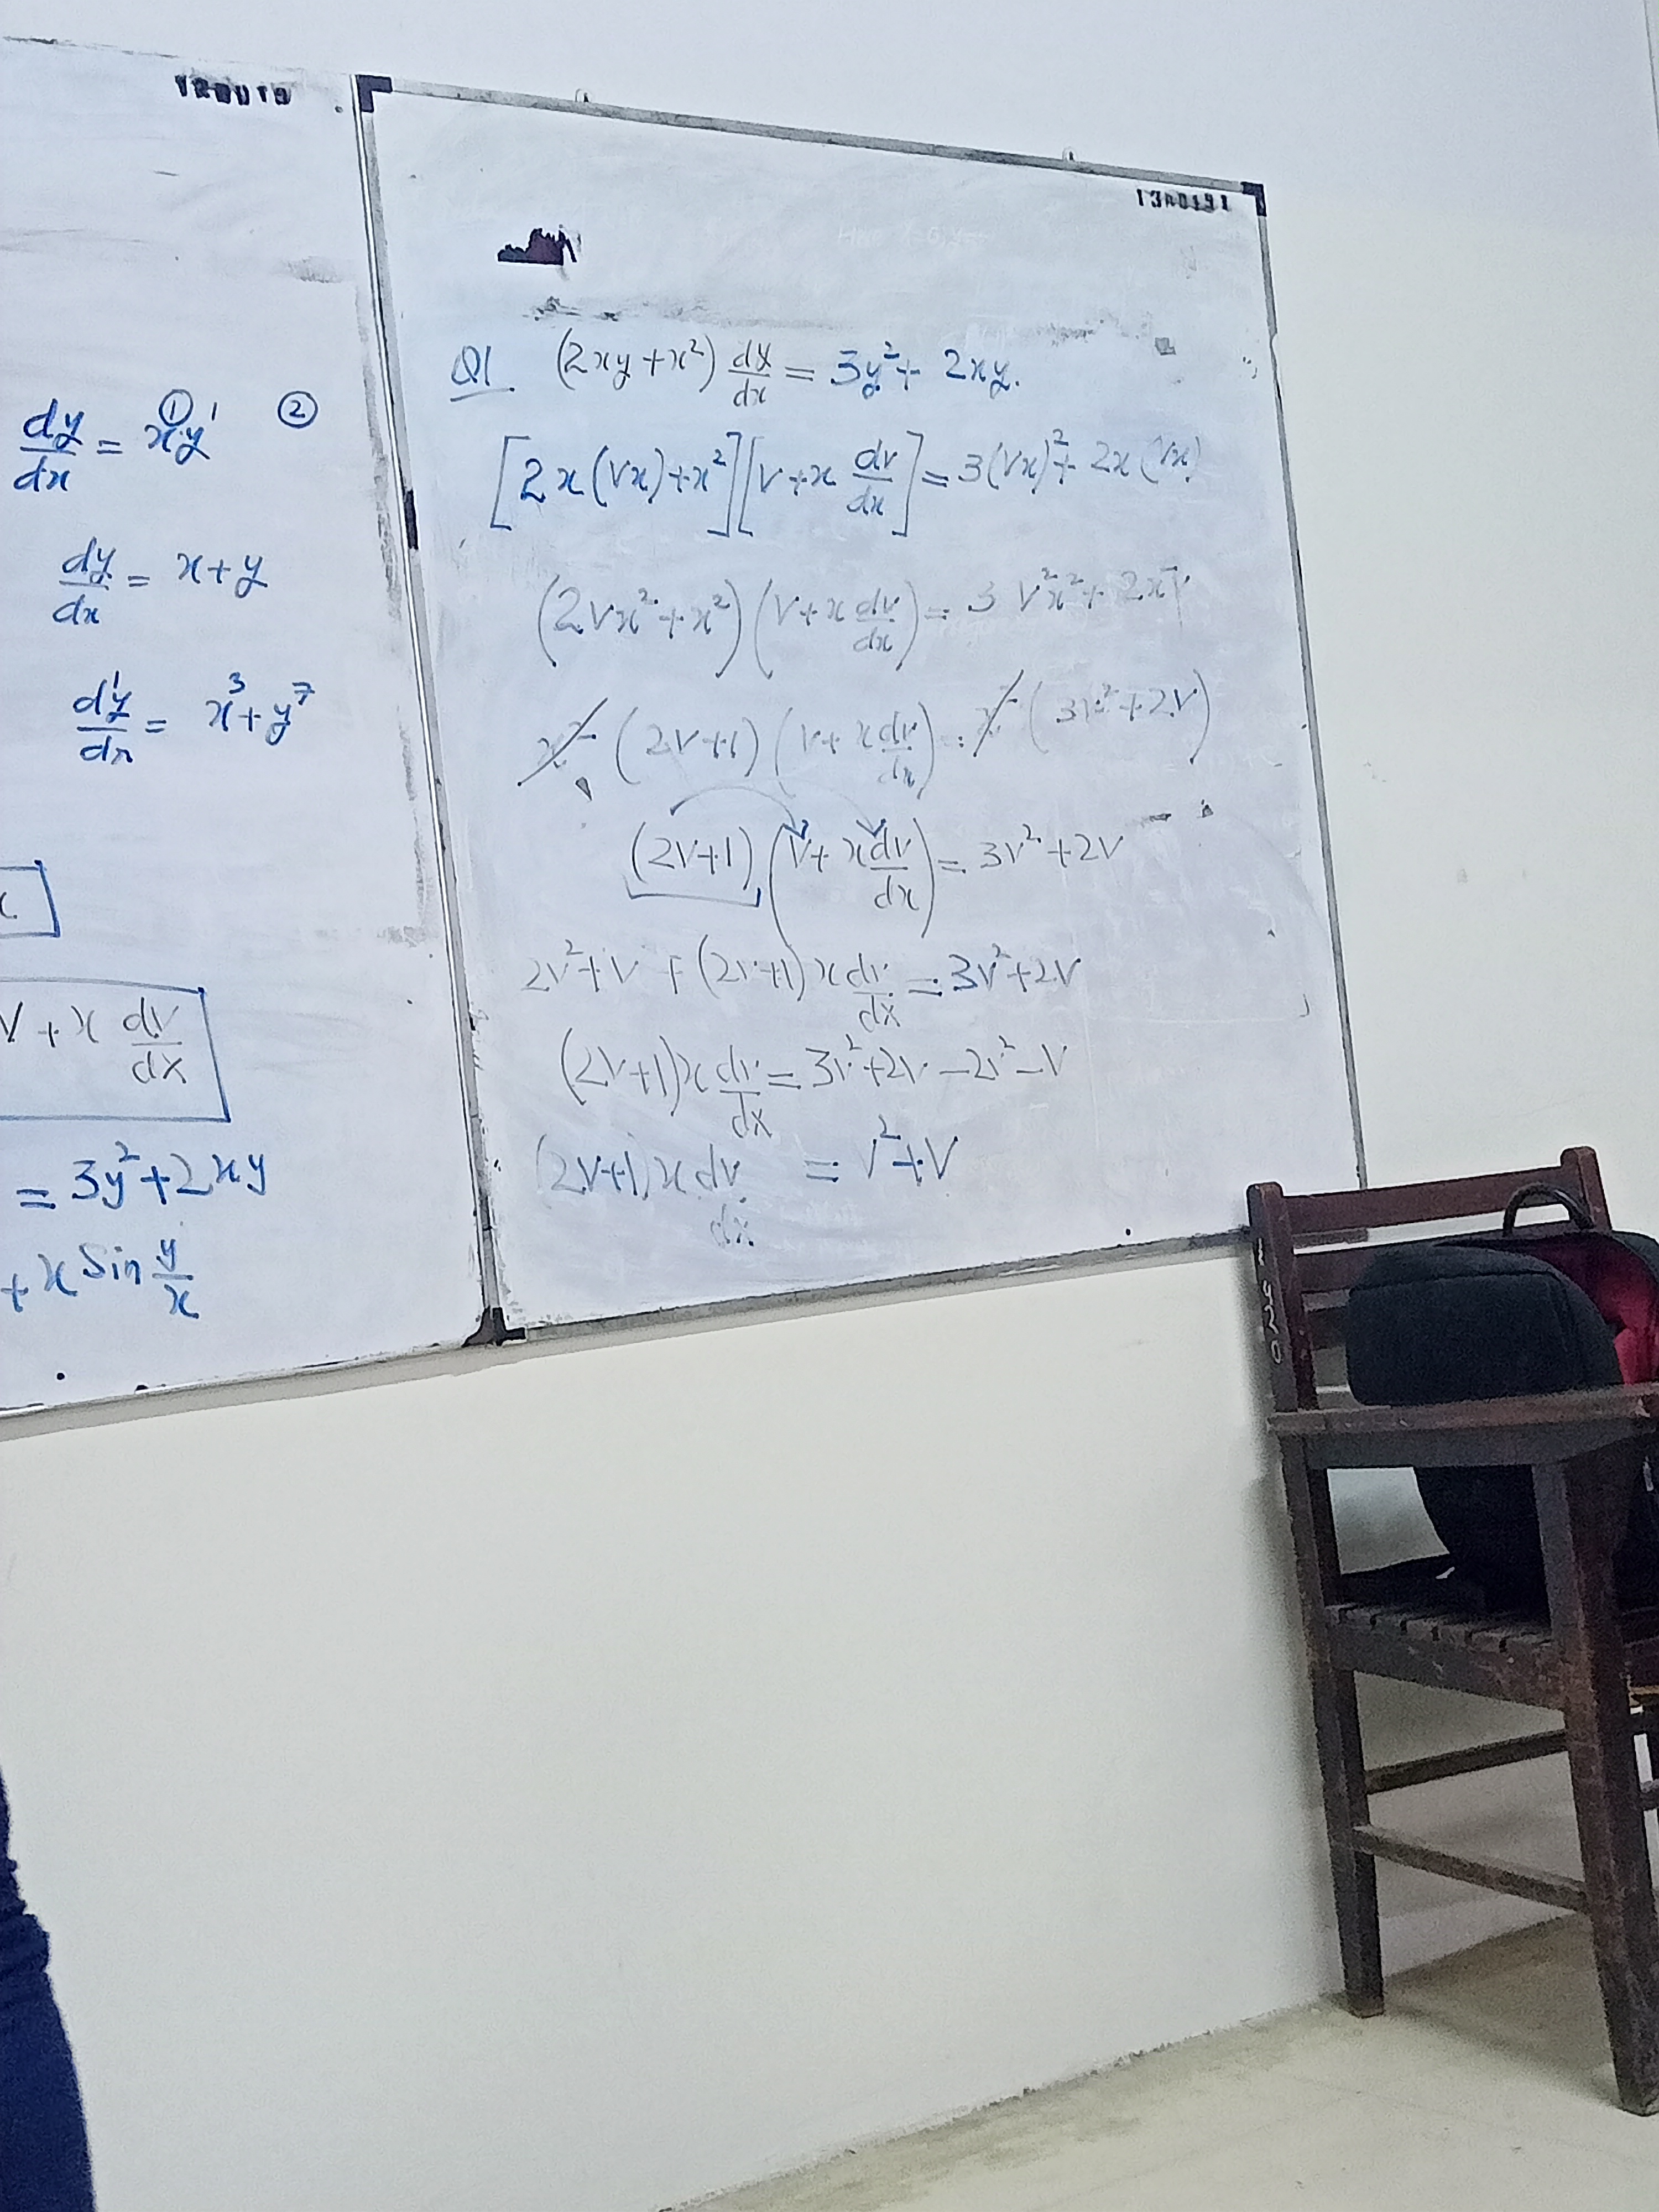 dy/dx = x.y' ① ②
dy/dx = x+y
dy/dx = x³+y⁷
V + x dv/dx
= 3y²+2xy
+ x Sin y/x
13A0191
Q1. (2xy+x²) dy/dx = 3y²+ 2xy.
[2x(Vx)+x²][V+x dv/dx] = 3(Vx)²+ 2x(Vx)
(2Vx²+x²)(V+x dv/dx) = 3V²x²+ 2x²V
x²(2V+1)(V+x dv/dx) = x²(3V²+2V)
(2V+1)(V+x dv/dx) = 3V²+2V
2V²+V+(2V+1)x dv/dx = 3V²+2V
(2V+1)x dv/dx = 3V²+2V-2V²-V
(2V+1)x dv/dx = V²+V